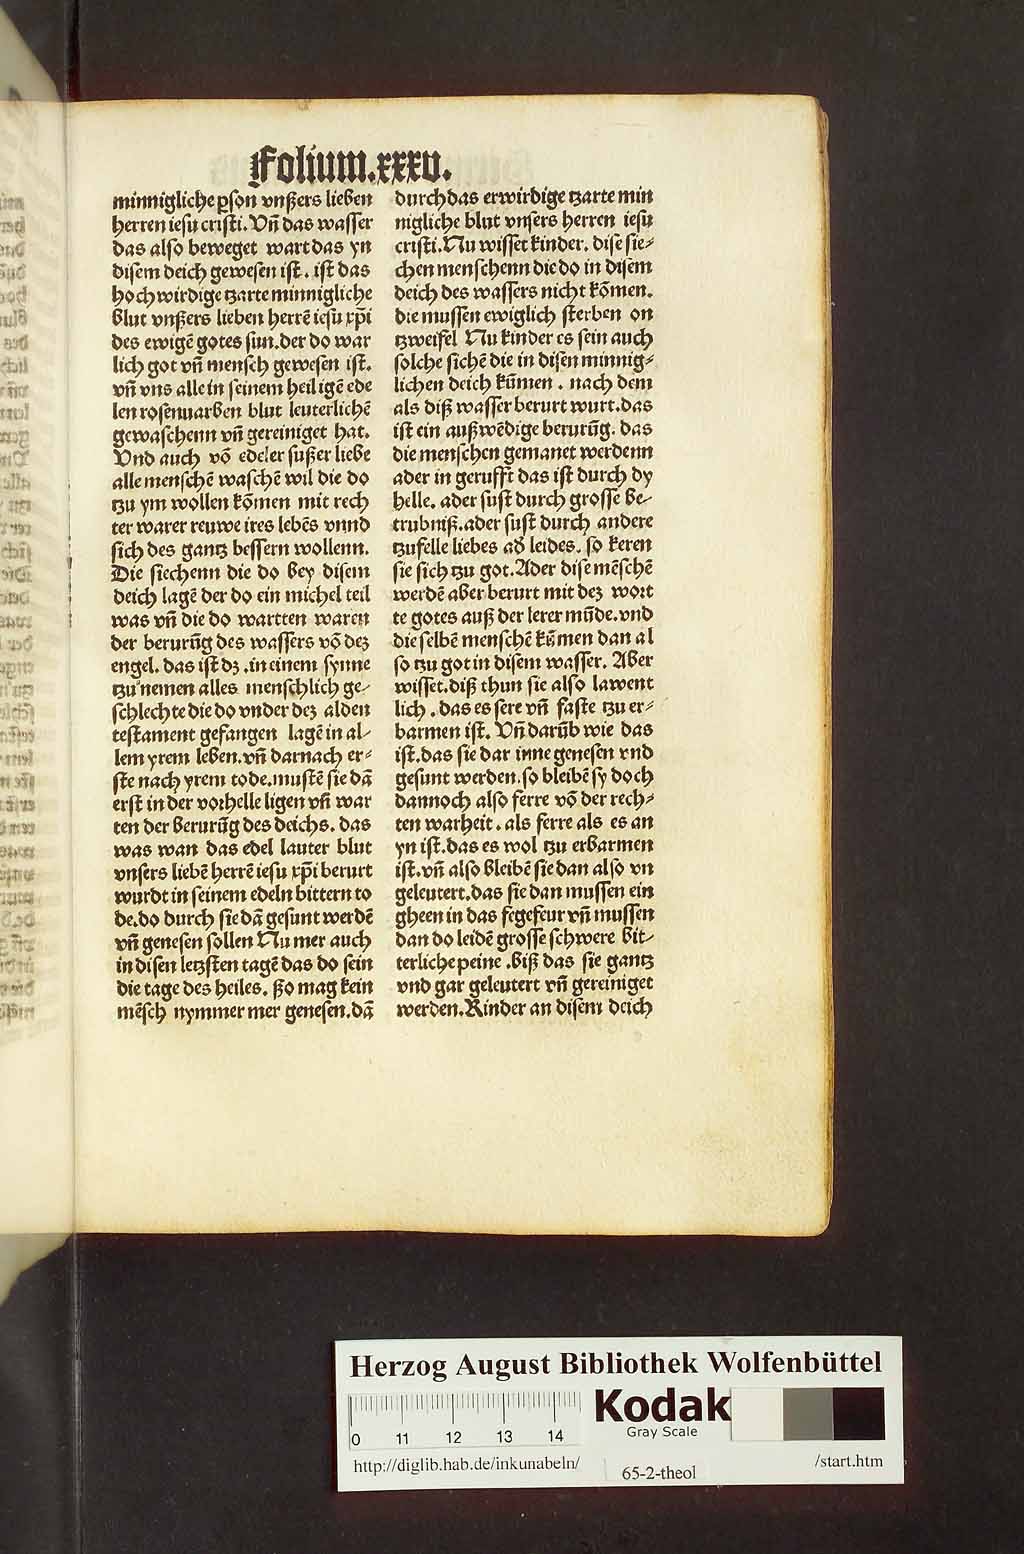 Folium.xxxv.
minnigliche ꝑson vnßers lieben
herren iesu cristi. Vn̄ das wasser
das also beweget wart das yn
disem deich gewesen ist. ist das
hochwirdige tzarte minnigliche
blut vnßers lieben herrē iesu xp̄i
des ewigē gotes sun. der do war
lich got vn̄ mensch gewesen ist.
vn̄ vns alle in seinem heiligē ede
len rosenuarben blut leuterlichē
gewaschenn vn̄ gereiniget hat.
Vnd auch vō edeler sußer liebe
alle menschē waschē wil die do
tzu ym wollen kōmen mit rech
ter warer reuwe ires lebēs vnnd
sich des gantz bessern wollenn.
Die siechenn die do bey disem
deich lagē der do ein michel teil
was vn̄ die do wartten waren
der berurūg des wassers vō deꝫ
engel. das ist dꝫ. in einem synne
tzu nemen alles menschlich ge-
schlechte die do vnder deꝫ alden
testament gefangen lagē in al-
lem yrem leben. vn̄ darnach er-
ste nach yrem tode. mustē sie dā
erst in der vorhelle ligen vn̄ war
ten der berurūg des deichs. das
was wan das edel lauter blut
vnsers liebē herrē iesu xp̄i berurt
wurdt in seinem edeln bittern to
de. do durch sie dā gesunt werdē
vn̄ genesen sollen Nu mer auch
in disen letzsten tagē das do sein
die tage des heiles. ßo mag kein
mēsch nymmer mer genesen. dā
durch das erwirdige tzarte min
nigliche blut vnsers herren iesu
cristi. Nu wisset kinder. dise sie-
chen menschenn die do in disem
deich des wassers nicht kōmen.
die mussen ewiglich sterben on
tzweifel Nu kinder es sein auch
solche sichē die in disen minnig-
lichen deich kūmen. nach dem
als diß wasser berurt wurt. das
ist ein außwēdige berurūg. das
die menschen gemanet werdenn
ader in gerufft das ist durch dy
helle. ader sust durch grosse be-
trubniß. ader sust durch andere
tzufelle liebes ad̄ leides. so keren
sie sich tzu got. Ader dise mēschē
werdē aber berurt mit deꝫ wort
te gotes auß der lerer mūde. vnd
die selbē menschē kūmen dan al
so tzu got in disem wasser. Aber
wisset. diß thun sie also lawent
lich. das es sere vn̄ faste tzu er-
barmen ist. Vn̄ darūb wie das
ist. das sie dar inne genesen vnd
gesunt werden. so bleibē sy doch
dannoch also ferre vō der rech-
ten warheit. als ferre als es an
yn ist. das es wol tzu erbarmen
ist. vn̄ also bleibē sie dan also vn
geleutert. das sie dan mussen ein
gheen in das fegefeur vn̄ mussen
dan do leidē grosse schwere bit-
terliche peine. biß das sie gantz
vnd gar geleutert vn̄ gereiniget
werden. Kinder an disem deich
Herzog August Bibliothek Wolfenbüttel
Kodak
Gray Scale
0 11 12 13 14
http://diglib.hab.de/inkunabeln/
65-2-theol
/start.htm